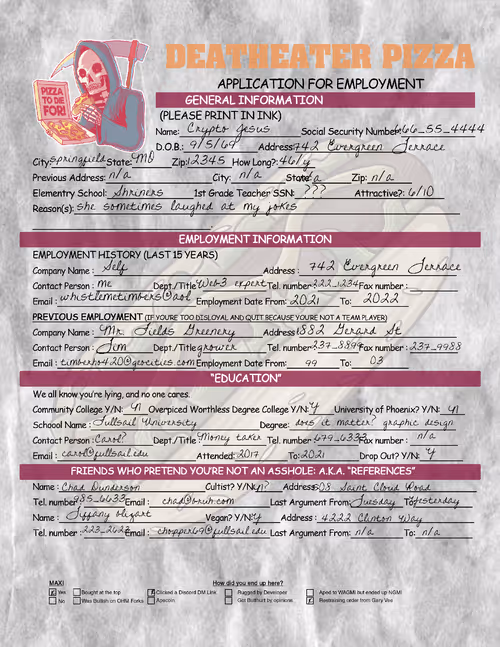 PIZZA TO DIE FOR!
DEATHEATER PIZZA
APPLICATION FOR EMPLOYMENT
GENERAL INFORMATION
(PLEASE PRINT IN INK)
Name: Crypto Jesus Social Security Number: 666_55_4444
D.O.B.: 9/5/69 Address: 742 Evergreen Terrace
City: Springfield State: MO Zip: 12345 How Long?: 46/y
Previous Address: n/a City: n/a State: n/a Zip: n/a
Elementry School: Shriners 1st Grade Teacher SSN: ??? Attractive?: 6/10
Reason(s): she sometimes laughed at my jokes
EMPLOYMENT INFORMATION
EMPLOYMENT HISTORY (LAST 15 YEARS)
Company Name : Self Address : 742 Evergreen Terrace
Contact Person : me Dept./Title Web3 expert Tel. number: 222_1234 Fax number :
Email : whistlemetimbers@aol Employment Date From: 2021 To: 2022
PREVIOUS EMPLOYMENT (IF YOU'RE TOO DISLOYAL AND QUIT BECAUSE YOU'RE NOT A TEAM PLAYER)
Company Name : Mr. Fields Greenery Address: 1882 Gerard St
Contact Person : Jim Dept./Title grower Tel. number: 237_8899 Fax number : 237_9988
Email : timberho420@geocities.com Employment Date From: 99 To: 03
"EDUCATION"
We all know you're lying, and no one cares.
Community College Y/N: n Overpiced Worthless Degree College Y/N: y University of Phoenix? Y/N: n
School Name : Fullsail University Degree: does it matter? graphic design
Contact Person : Carol? Dept./Title : Money taker Tel. number: 679_6333 Fax number : n/a
Email : carol@fullsail.edu Attended: 2017 To: 2021 Drop Out? Y/N: y
FRIENDS WHO PRETEND YOU'RE NOT AN ASSHOLE: A.K.A. "REFERENCES"
Name : Chad Dunderson Cultist? Y/N: n? Address: 508 Saint Cloud Road
Tel. number: 985_6633 Email : chad@bruh.com Last Argument From: Tuesday To: Yesterday
Name : Tiffany Vegan? Y/N: y Address : 4222 Clinton Way
Tel. number : 223_2623 Email : chopper69@fullsail.edu Last Argument From: n/a To: n/a
MAXI How did you end up here?
x Yes Bought at the top x Clicked a Discord DM Link Rugged by Developer Aped to WAGMI but ended up NGMI
No Was Bullish on OHM Forks Apecoin Got Butthurt by opinions x Restraining order from Gary Vee